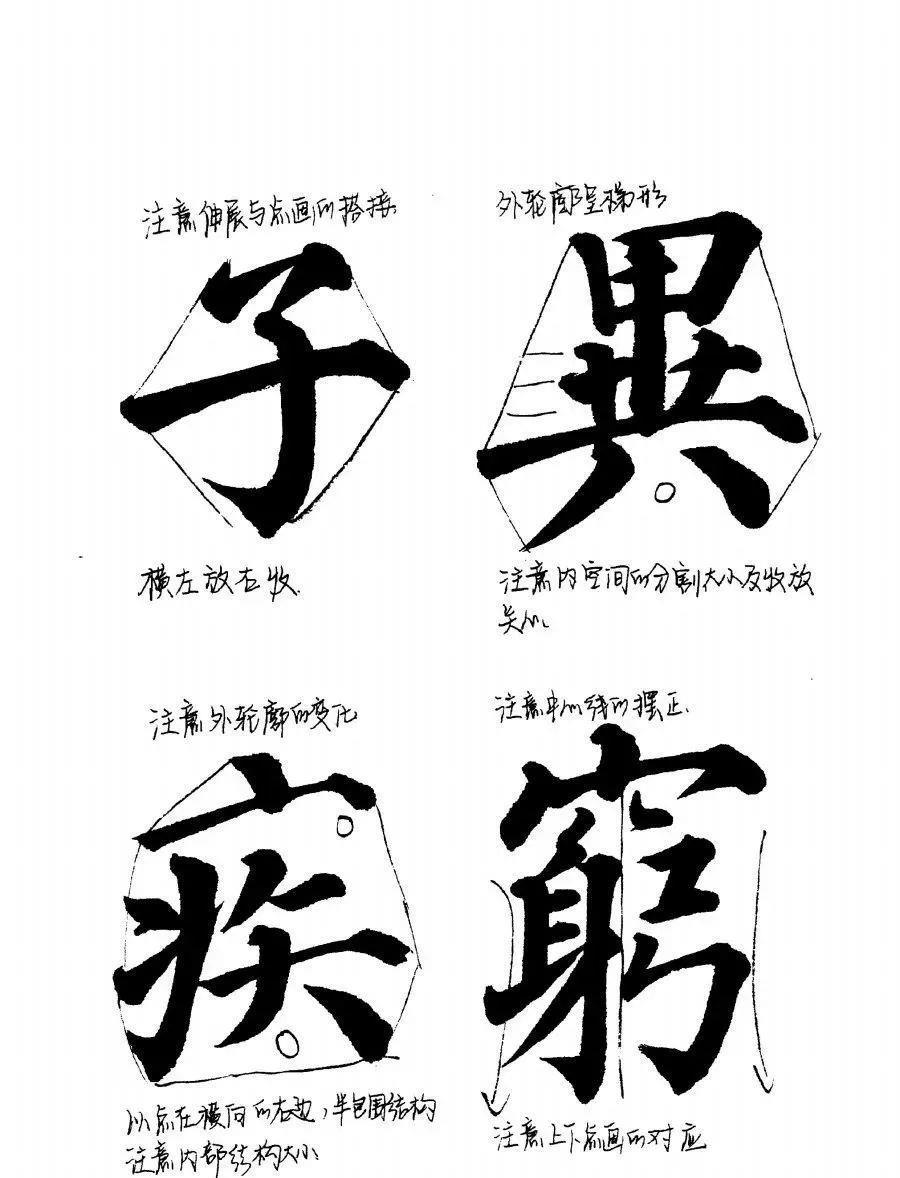 注意伸展与点画的搭接
子
横左放右收
外轮廓呈梯形
異
注意内空间的分割大小及收放
关系
注意外轮廓的变化
疾
以点在横向的右边，半包围结构
注意内部结构大小
注意中心线的摆正
窮
注意上下点画的对应